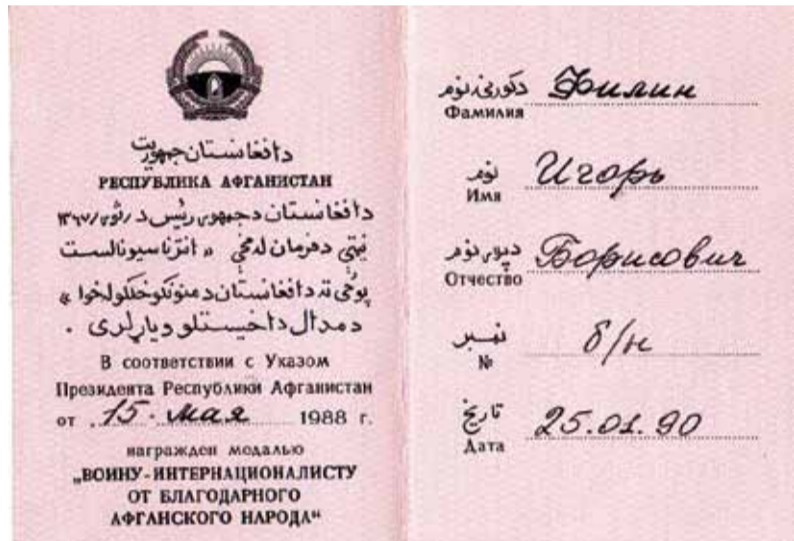 دافغانستان جمهوریت
РЕСПУБЛИКА АФГАНИСТАН
دافغانستان دجمهور رئیس د
نیټې دفرمان له مخې « انترناسیونالست
پوځی ته دافغانستان دمننوکوونکو خلکو لخوا »
دمدال داخیستلو ویاړ لری .
В соответствии с Указом
Президента Республики Афганистан
от 15 мая 1988 г.
награжден медалью
„ВОИНУ-ИНТЕРНАЦИОНАЛИСТУ
ОТ БЛАГОДАРНОГО
АФГАНСКОГО НАРОДА“
دکورنی نوم Филин
Фамилия
نوم Игорь
Имя
دپلار نوم Борисович
Отчество
نمبر б/н
№
تاریخ 25.01.90
Дата